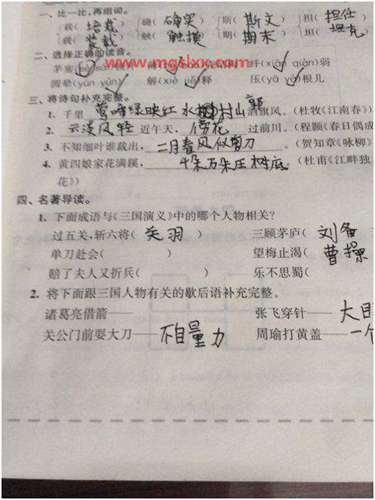 一、比一比，再组词。
栽（培栽） 确（确实） 斯（斯文） 担（担任
载（装载） 触（触摸） 期（期末） 坦（坦克
www.mgslxx.com
二、选择正确的读音。
茅 纤（xiān qiān）弱
圆晕（yūn yùn） 解（ 释 压（ 根儿
三、将诗句补充完整。
1. 千里莺啼绿映红，水村山郭 酒旗风。（杜牧《江南春》）
2. 云淡风轻近午天，傍花 过前川。（程颢《春日偶成
3. 不知细叶谁裁出，二月春风似剪刀 （贺知章《咏柳
4. 黄四娘家花满蹊，千朵万朵压 （杜甫《江畔独
花》）
四、名著导读。
1. 下面成语与《三国演义》中的哪个人物相关？
过五关，斩六将（关羽） 三顾茅庐（刘备
单刀赴会（ ） 望梅止渴（曹操
赔了夫人又折兵（ ） 乐不思蜀（
2. 将下面跟三国人物有关的歇后语补充完整。
诸葛亮借箭—— 张飞穿针——大
关公门前耍大刀——不自量力 周瑜打黄盖——一个